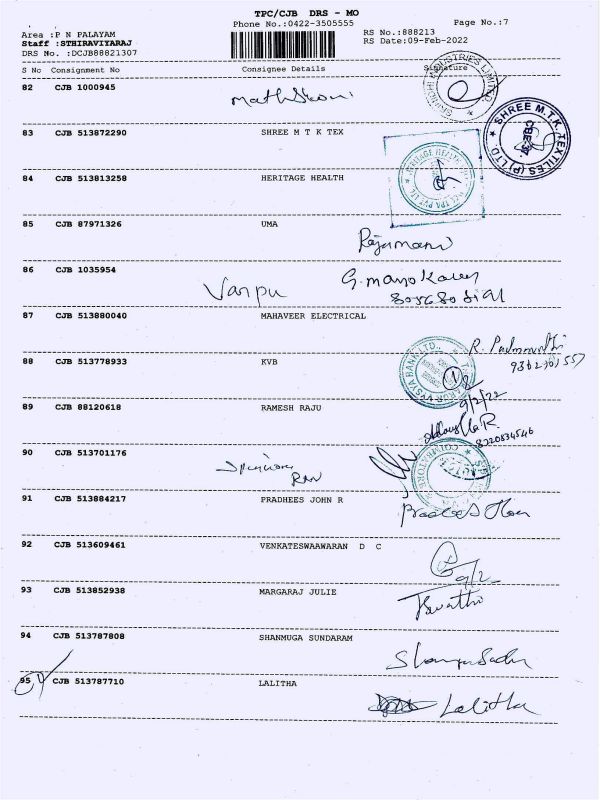 TPC/CJB DRS - MO
Phone No.:0422-3505555
Page No.:7
Area :P N PALAYAM
Staff :STHIRAVIYARAJ
DRS No. :DCJB88821307
RS No.:888213
RS Date:09-Feb-2022
S No Consignment No Consignee Details Signature
82 CJB 1000945
83 CJB 513872290 SHREE M T K TEX
SHREE M.T.K. TEXTILES (P) LTD. CBE-37.
84 CJB 513813258 HERITAGE HEALTH
85 CJB 87971326 UMA
86 CJB 1035954
87 CJB 513880040 MAHAVEER ELECTRICAL
88 CJB 513778933 KVB
9/2/22
89 CJB 88120618 RAMESH RAJU
8220834546
90 CJB 513701176
91 CJB 513884217 PRADHEES JOHN R
92 CJB 513609461 VENKATESWAAWARAN D C
9/2
93 CJB 513852938 MARGARAJ JULIE
94 CJB 513787808 SHANMUGA SUNDARAM
95 CJB 513787710 LALITHA
Lalitha